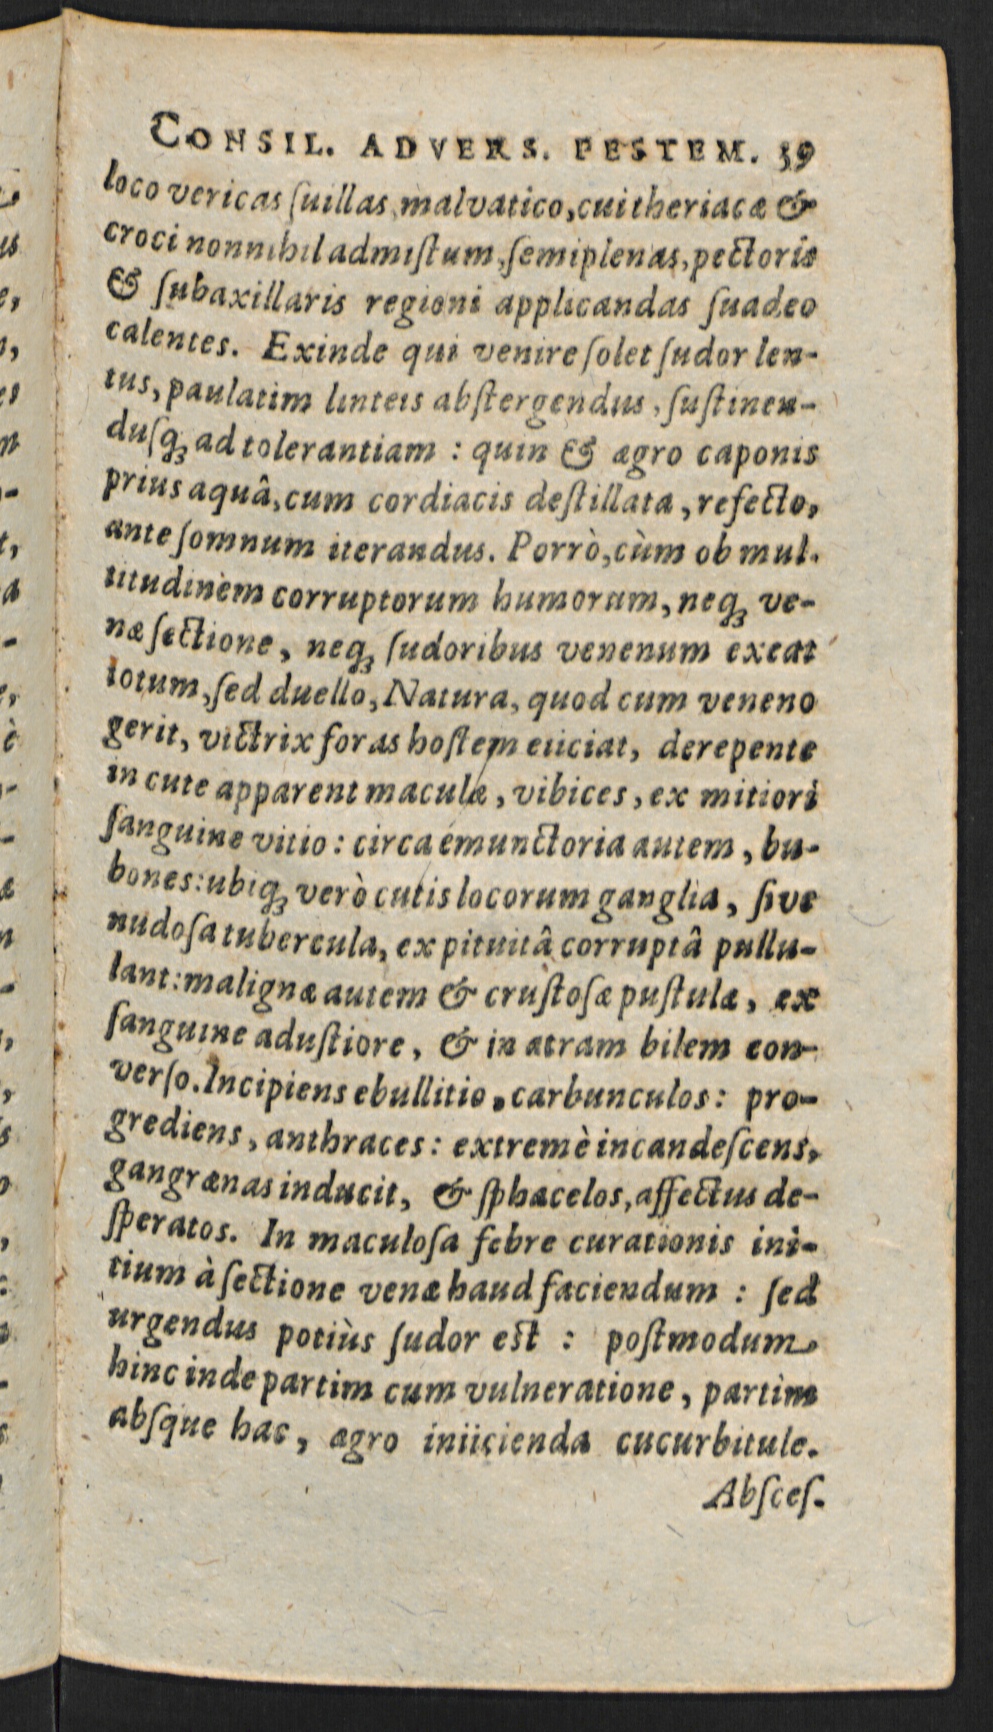 CONSIL. ADVERS. PESTEM. 39
loco vericas ſuillas, malvatico, cui theriacæ &
croci nonnihil admiſtum, ſemiplenas, pectoris
& ſubaxillaris regioni applicandas ſuadeo
calentes. Exinde qui venire ſolet ſudor len-
tus, paulatim linteis abſtergendus, ſuſtinen-
duſq; ad tolerantiam : quin & ægro caponis
prius aquâ, cum cordiacis deſtillata, refecto,
ante ſomnum iterandus. Porrò, cùm ob mul-
titudinem corruptorum humorum, neq; ve-
næ ſectione, neq; ſudoribus venenum exeat
totum, ſed duello, Natura, quod cum veneno
gerit, victrix foras hoſtem eiiciat, derepente
in cute apparent maculæ, vibices, ex mitiori
ſanguine vitio : circa emunctoria autem, bu-
bones: ubiq; verò cutis locorum ganglia, ſive
nudoſa tubercula, ex pituitâ corruptâ pullu-
lant: malignæ autem & cruſtoſæ puſtulæ, ex
ſanguine aduſtiore, & in atram bilem con-
verſo. Incipiens ebullitio, carbunculos : pro-
grediens, anthraces : extremè incandeſcens,
gangrænas inducit, & ſphacelos, affectus de-
ſperatos. In maculoſa febre curationis ini-
tium à ſectione venæ haud faciendum : ſed
urgendus potiùs ſudor eſt : poſtmodum
hinc inde partim cum vulneratione, partim
abſque hac, ægro iniicienda cucurbitule.
Abſceſ-